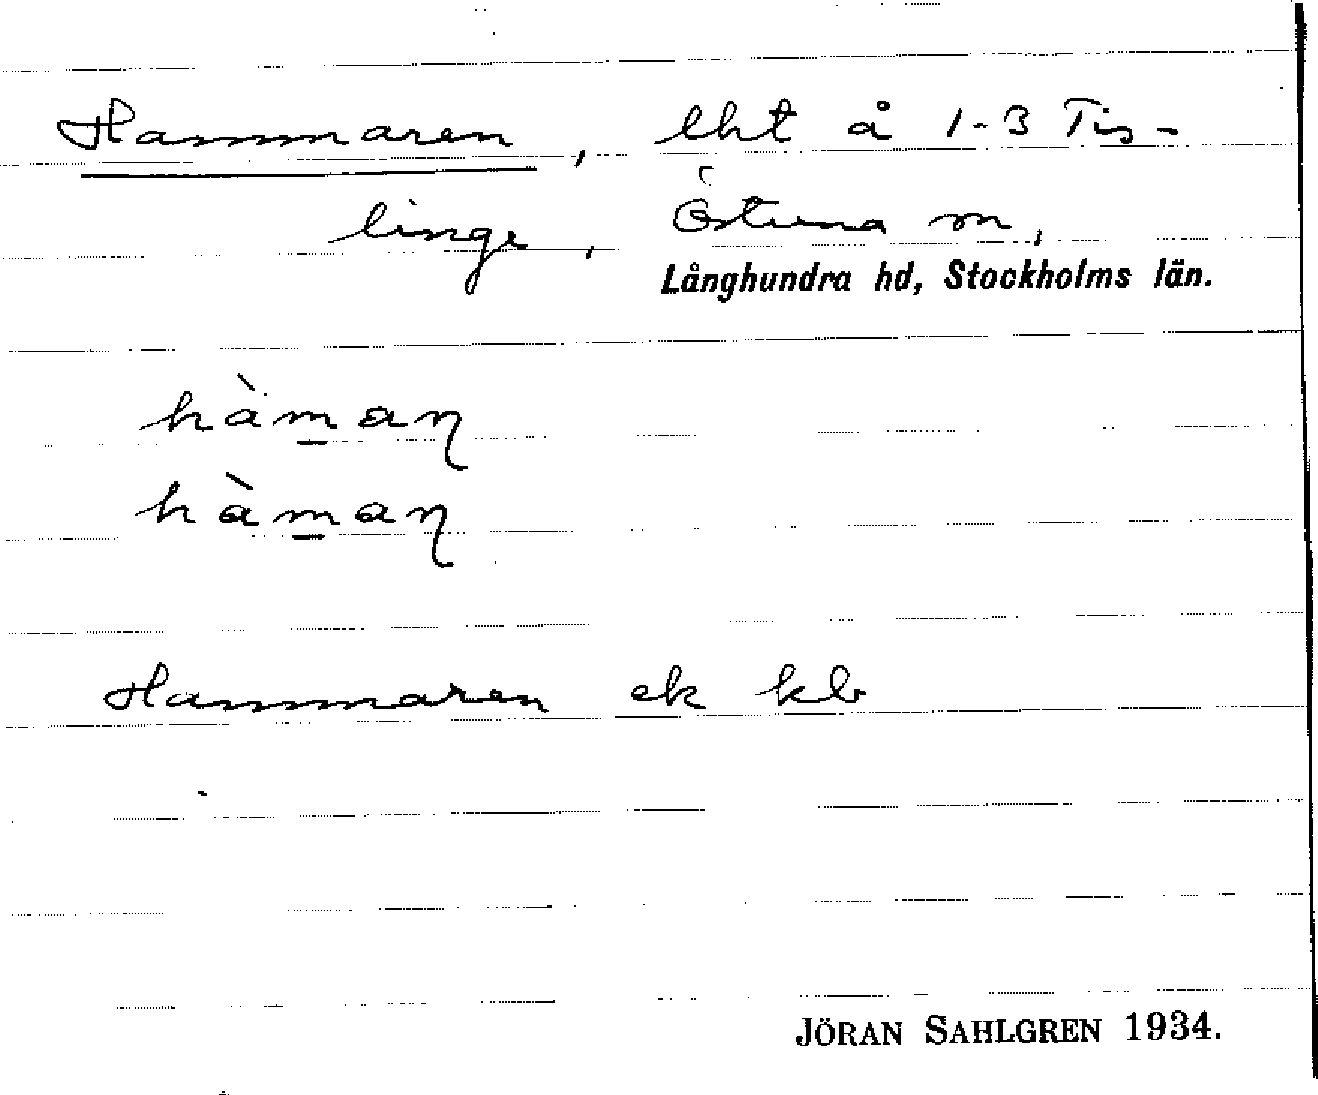 Hammaren, lht å 1-3 Tis-
linge, Östuna sn,
Långhundra hd, Stockholms län.
hàmaɳ
hàmaɳ
Hammaren ek kb
JÖRAN SAHLGREN 1934.